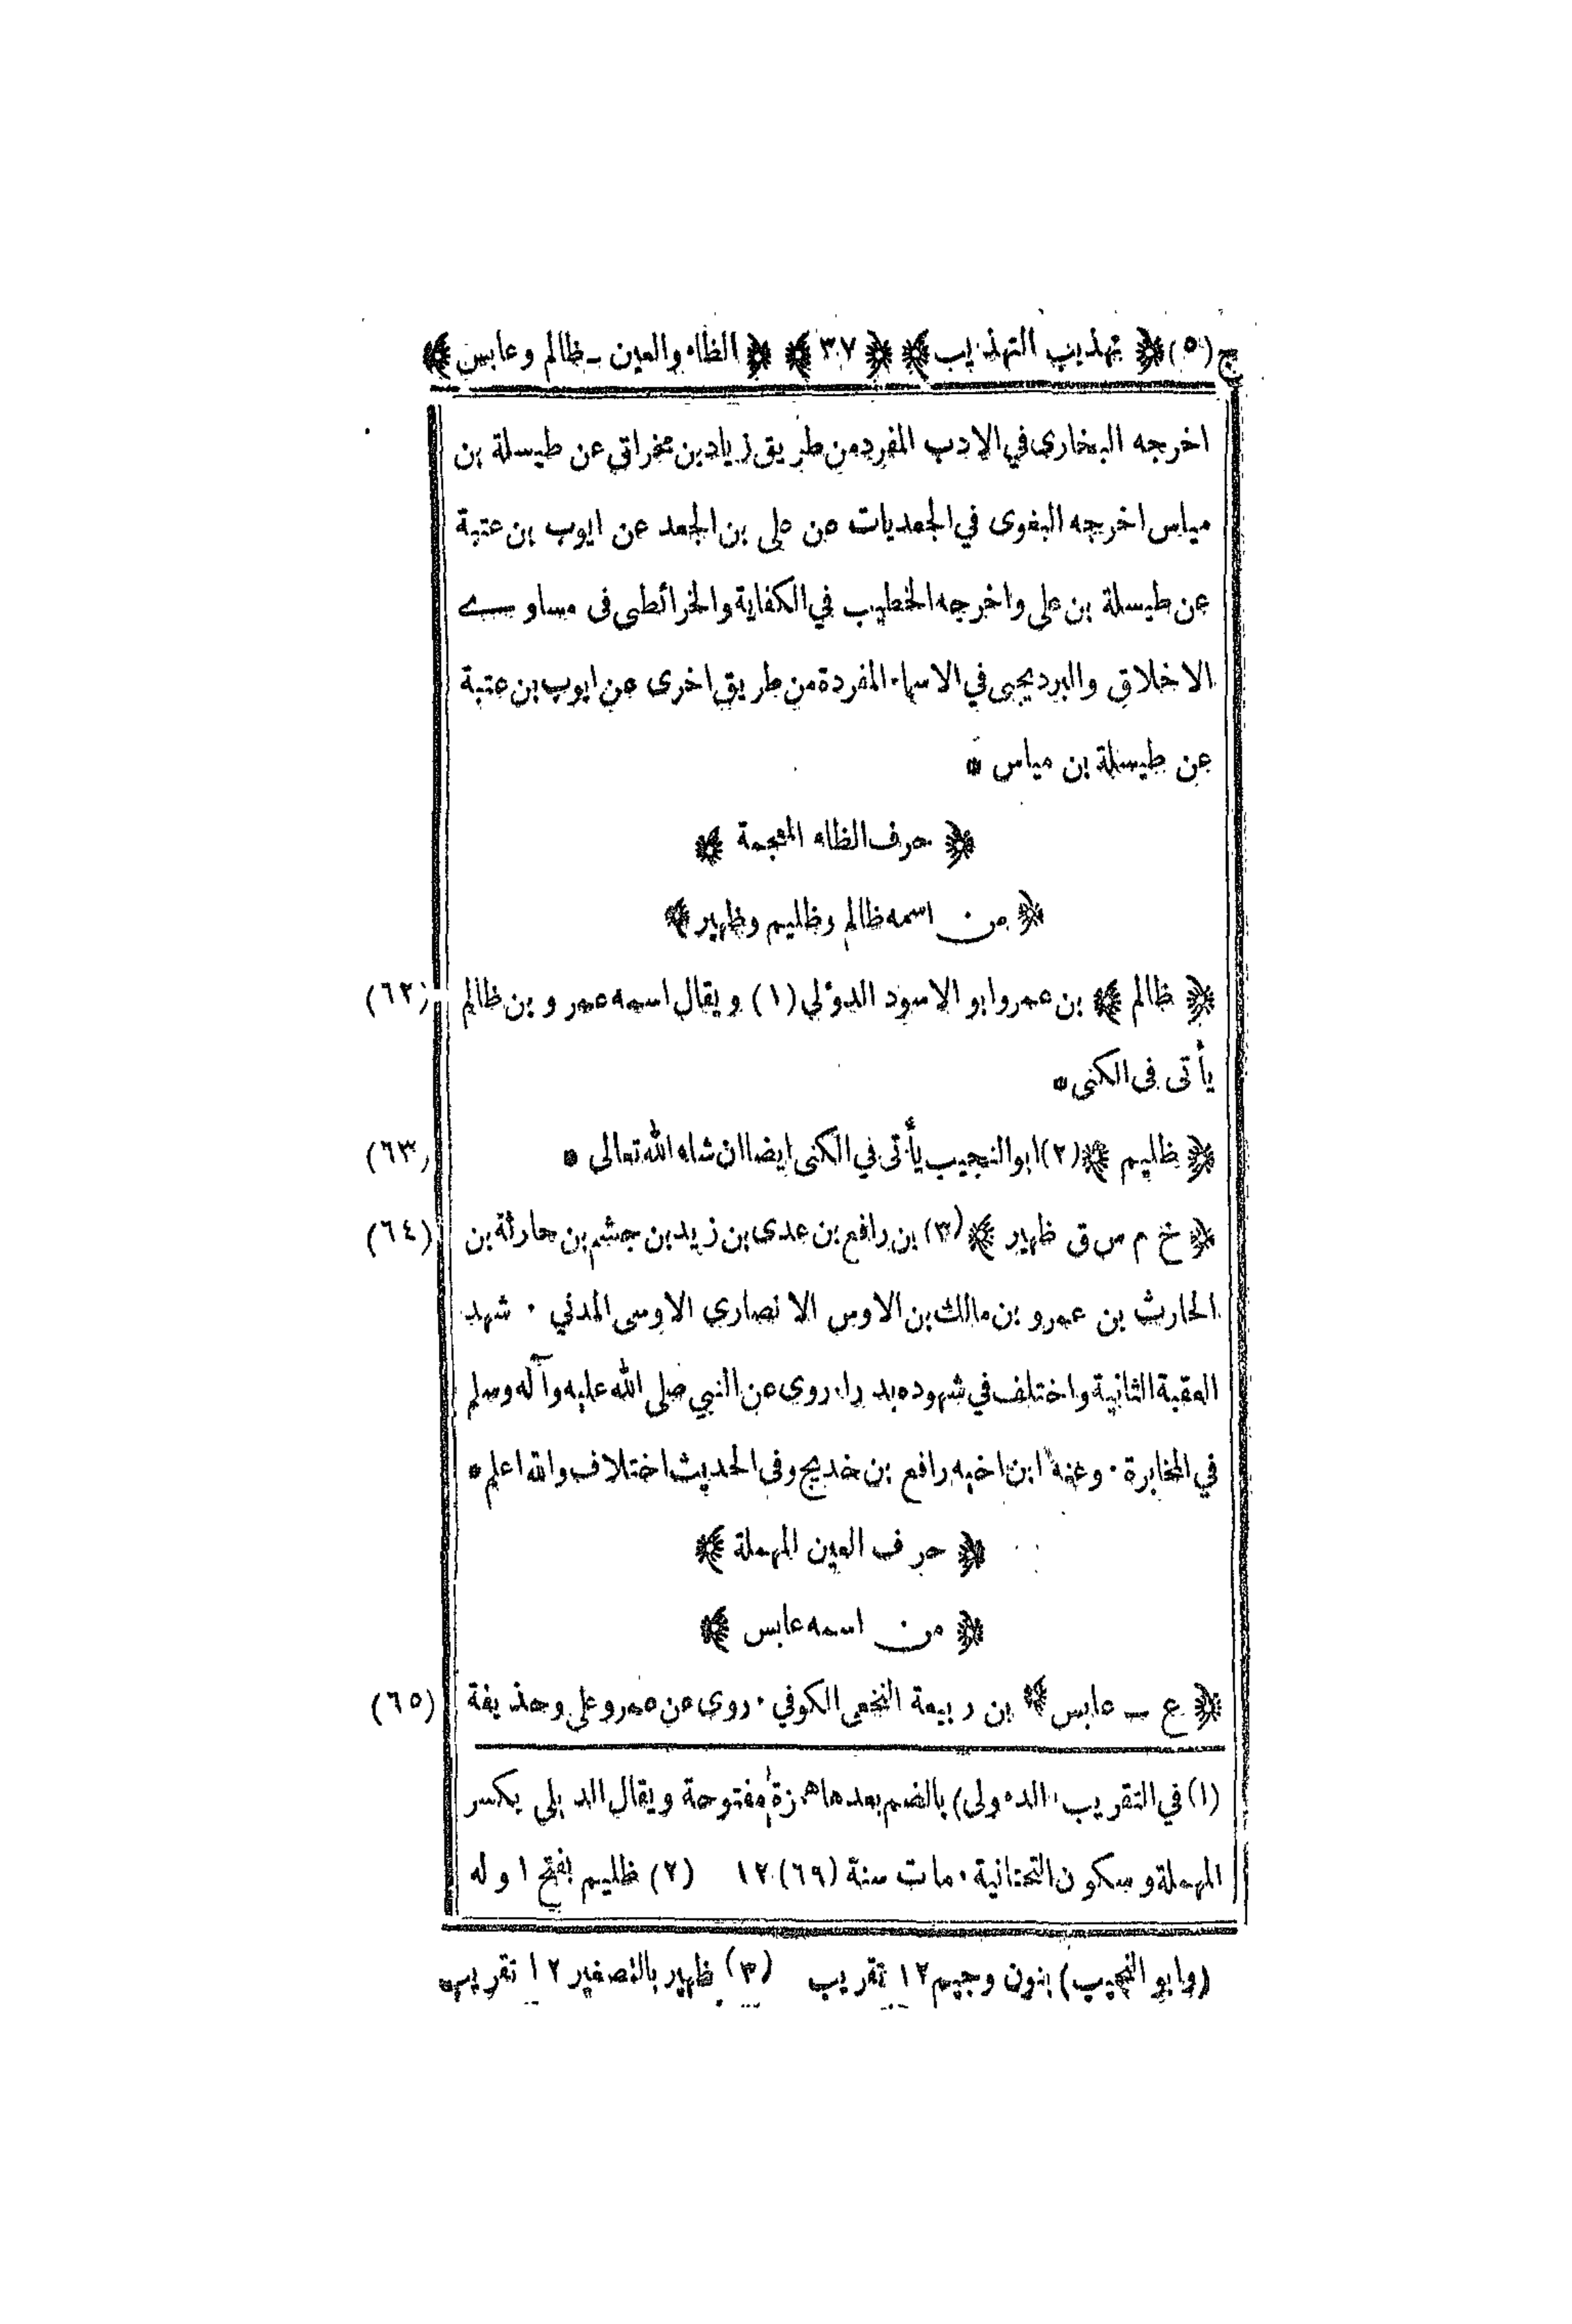 ج (٥) ﴿ تهذيب التهذيب ﴾ ﴿ ٣٧ ﴾ ﴿ الظاء والعين ـ ظالم وعابس ﴾
اخرجه البخاري في الادب المفرد من طريق زياد بن مخراق عن طيسلة بن
مياس اخرجه البغوى في الجعديات عن على بن الجعد عن ايوب بن عتبة
عن طيسلة بن على واخرجه الخطيب في الكفاية والخرائطى فى مساوے
الاخلاق والبرديجى في الاسماء المفردة من طريق اخرى عن ايوب بن عتبة
عن طيسلة بن مياس *
﴿ حرف الظاء المعجمة ﴾
﴿ من اسمه ظالم وظليم وظهير ﴾
﴿ ظالم ﴾ بن عمرو ابو الاسود الدؤلي (١) ويقال اسمه عمرو بن ظالم (٦٢)
يأتى فى الكنى *
﴿ ظليم ﴾ (٢) ابو النجيب يأتى في الكنى ايضا ان شاء الله تعالى * (٦٣)
﴿ خ م س ق ظهير ﴾ (٣) بن رافع بن عدى بن زيد بن جشم بن حارثة بن (٦٤)
الحارث بن عمرو بن مالك بن الاوس الانصاري الاوسى المدني . شهد
العقبة الثانية واختلف في شهوده بدرا . روى عن النبي صلى الله عليه وآله وسلم
في المخابرة . وعنه ابن اخيه رافع بن خديج وفى الحديث اختلاف والله اعلم *
﴿ حرف العين المهملة ﴾
﴿ من اسمه عابس ﴾
﴿ ع ـ عابس ﴾ بن ربيعة النخعى الكوفي . روى عن عمر وعلى وحذيفة (٦٥)
(١) في التقريب (الدءولى) بالضم بعدها همزة مفتوحة ويقال الديلى بكسر
المهملة وسكون التحتانية . مات سنة (٦٩) ١٢ (٢) ظليم بفتح اوله
(وابو النجيب) بنون وجيم ١٢ تقريب (٣) ظهير بالتصغير ١٢ تقريب